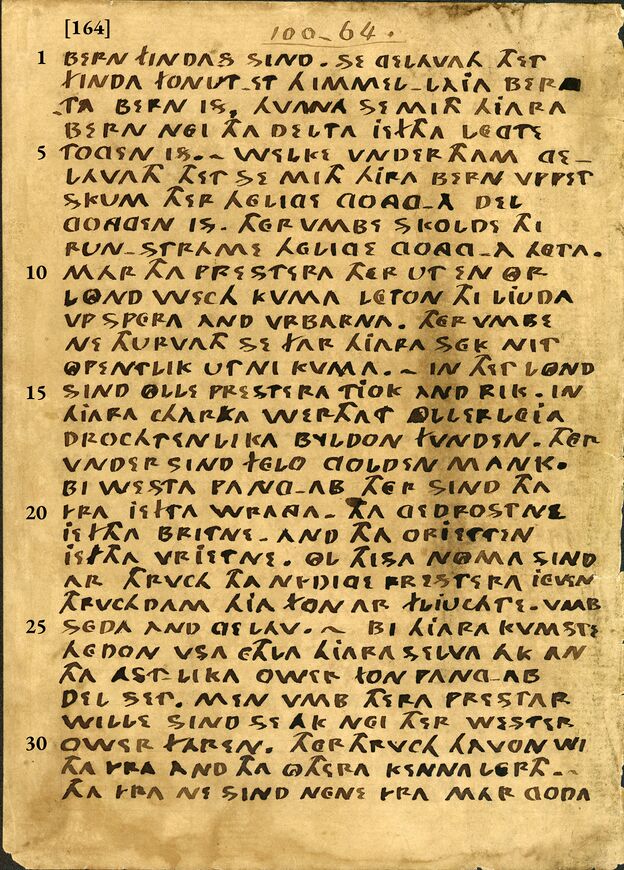 [164] 100-64.
1 BERN FINDAS SIND. SE GELAVATH THET
FINDA FONUT.ET HIMMEL-LAJA BER-
TA BERN IS, HVANA SE MITH HJARA
BERN NEI THA DELTA JEFTHA LEGTE
5 TOGEN IS. ~ WELKE VNDER THAM GE-
LAVATH THET SE MITH HJRA BERN VPPET
SKUM THER HELIGE GONG-A DEL
GONGEN IS. THERVMBE SKOLDE THI
RUN-STRAME HELIGE GONG-A HETA.
10 MAR THA PRESTERA THER UT EN OR
LOND WECH KVMA LETON THI LIUDA
VP SPERA AND VRBARNA. THERVMBE
NE THURVATH SE FAR HJARA SEK NIT
OPENTLIK UT NI KVMA. ~ IN THET LOND
15 SIND OLLE PRESTERA TJOK AND RIK. IN
HJARA CHARKA WERTHAT OLLERLEJA
DROCHTENLIKA BYLDON FUNDEN. THER
VNDER SIND FELO GOLDEN MANK.
BI WESTA PANG-AB THER SIND THA
20 YRA JEFTA WRANGA. THA GEDROSTNE
JEFTHA BRITNE. AND THA ORJETTEN
JEFTHA VRJETNE. OL THISA NOMA SIND
AR THRVCH THA NYDIGE PRESTERA JEVEN
THRVCHDAM HJA FON AR FLJUCHTE. VMB
25 SEDA AND GELAV. ~ BI HJARA KVMSTE
HEDON VSA ETHLA HJARA SELVA AK AN
THA AST-LIKA OWER FON PANG-AB
DEL SET. MEN VMB THERA PRESTAR
WILLE SIND SE AK NEI THER WESTER
30 OWER FAREN. THERTHRVCH HAVON WI
THA YRA AND THA OTHERA KENNA LERTH. ~
THA YRA NE SIND NENE YRA MAR GODA